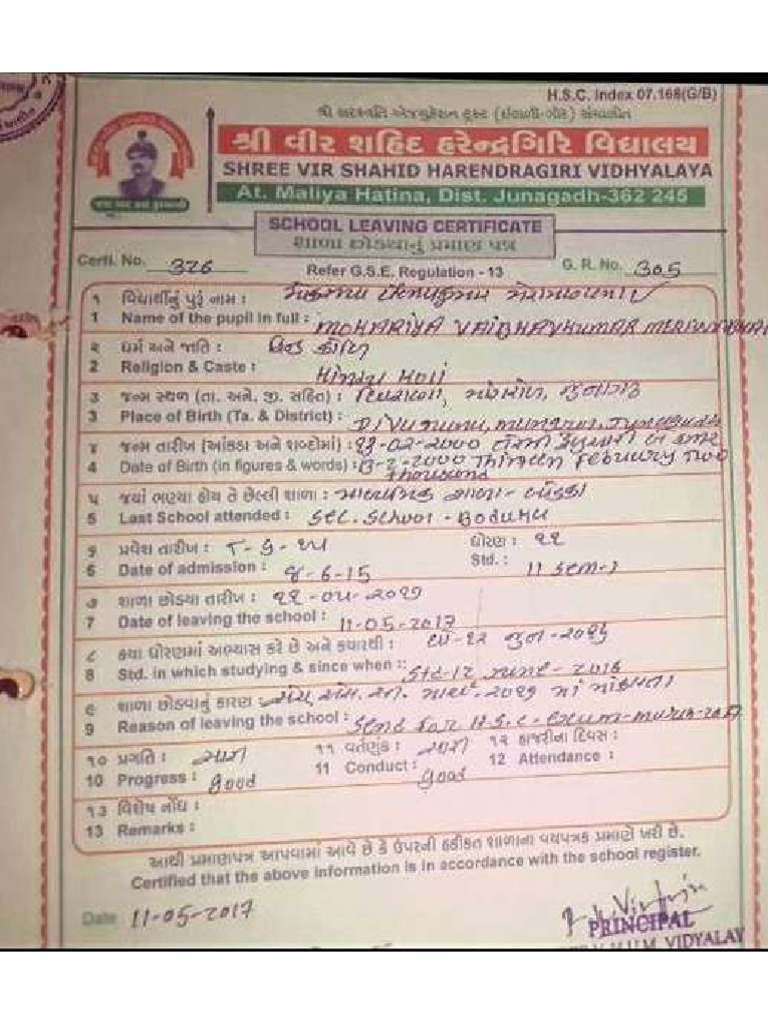 H.S.C. Index 07.168(G/B)
શ્રી સરસ્વતિ એજ્યુકેશન ટ્રસ્ટ સંચાલીત
શ્રી વીર શહિદ હરેન્દ્રગિરિ વિદ્યાલય
SHREE VIR SHAHID HARENDRAGIRI VIDHYALAYA
At. Maliya Hatina, Dist. Junagadh-362 245
SCHOOL LEAVING CERTIFICATE
શાળા છોડયાનું પ્રમાણ પત્ર
Certi. No. 326 Refer G.S.E. Regulation - 13 G. R. No. 305
૧ વિદ્યાર્થીનું પુરૂં નામ :
1 Name of the pupil in full : MOHARIYA VAIBHAVKUMAR
૨ ધર્મ અને જાતિ : હિન્દુ કોળિ
2 Religion & Caste : Hindu Koli
૩ જન્મ સ્થળ (તા. અને. જી. સહિત) : દિવરાણા, માંગરોળ, જુનાગઢ
3 Place of Birth (Ta. & District) : Divarana, Mangrol, Junagadh
૪ જન્મ તારીખ (આંકડા અને શબ્દોમાં) : ૧૩-૦૨-૨૦૦૦ તેરમી ફેબ્રુઆરી બે હજાર
4 Date of Birth (in figures & words) : 13-2-2000 Thirteen February Two
thousand
૫ જયાં ભણ્યા હોય તે છેલ્લી શાળા : માધ્યમિક શાળા -
5 Last School attended : Sec. School -
૬ પ્રવેશ તારીખ : ૮-૬-૧૫ ધોરણ : ૧૧
6 Date of admission : 8-6-15 Std. : 11 Sem-1
૭ શાળા છોડયા તારીખ : ૧૧-૦૫-૨૦૧૭
7 Date of leaving the school : 11-05-2017
૮ કયા ધોરણમાં અભ્યાસ કરે છે અને કયારથી : ધો-૧૨ જુન-૨૦૧૬
8 Std. in which studying & since when : Std-12 June - 2016
૯ શાળા છોડવાનું કારણ : એચ.એસ.સી. માર્ચ-૨૦૧૭ માં મોકલતા
9 Reason of leaving the school : Send for H.S.C - Exam - March-2017
૧૦ પ્રગતિ : સારી ૧૧ વર્તણુંક : સારી ૧૨ હાજરીના દિવસ :
10 Progress : Good 11 Conduct : Good 12 Attendance :
૧૩ વિશેષ નોંધ :
13 Remarks :
આથી પ્રમાણપત્ર આપવામાં આવે છે કે ઉપરની હકીકત શાળાના વયપત્રક પ્રમાણે ખરી છે.
Certified that the above information is in accordance with the school register.
Date 11-05-2017
PRINCIPAL
VIDYALAY